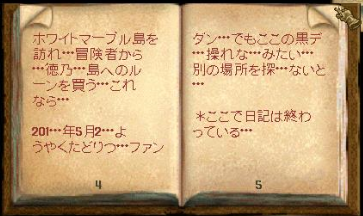 ホワイトマーブル島を
訪れ…冒険者から
…徳乃…島へのル
ーンを買う…これ
なら…
201…年5月2…よ
うやくたどりつ…ファン
4
ダン…でもここの黒デ
…操れな…みたい…
別の場所を探…ないと
…
*ここで日記は終わ
っている…
5